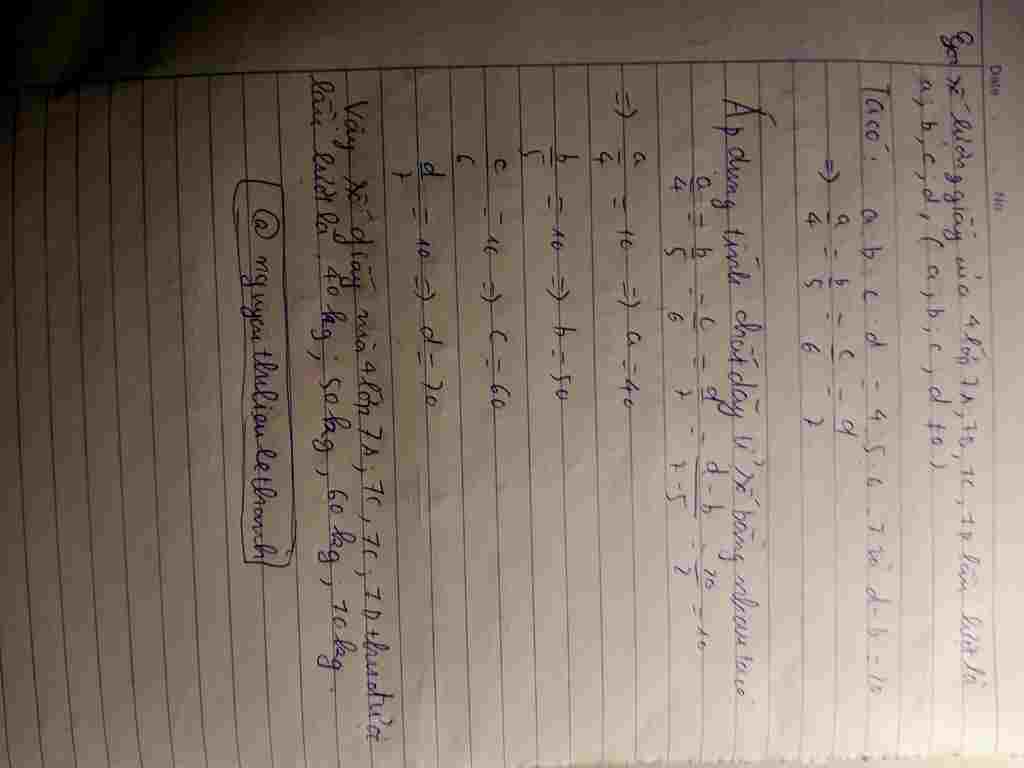 Date No
Gọi số lượng giấy của 4 lớp 7A, 7B, 7C, 7D lần lượt là
a, b, c, d, (a, b, c, d ≠ 0)
Ta có: a b c d = 4 5 6 7 và d - b = 20
=> a/4 = b/5 = c/6 = d/7
Áp dụng tính chất dãy tỉ số bằng nhau ta có
a/4 = b/5 = c/6 = d/7 = d-b/7-5 = 20/2 = 10
=> a/4 = 10 => a = 40
b/5 = 10 => b = 50
c/6 = 10 => c = 60
d/7 = 10 => d = 70
Vậy số giấy của 4 lớp 7A, 7C, 7C, 7D thu được
lần lượt là 40 kg, 50 kg, 60 kg, 70 kg.
@ nguyenthilieulethanh